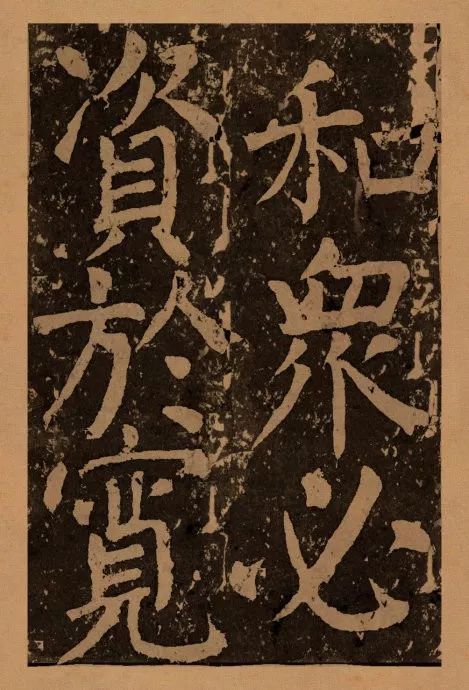 和眾必
資於寬